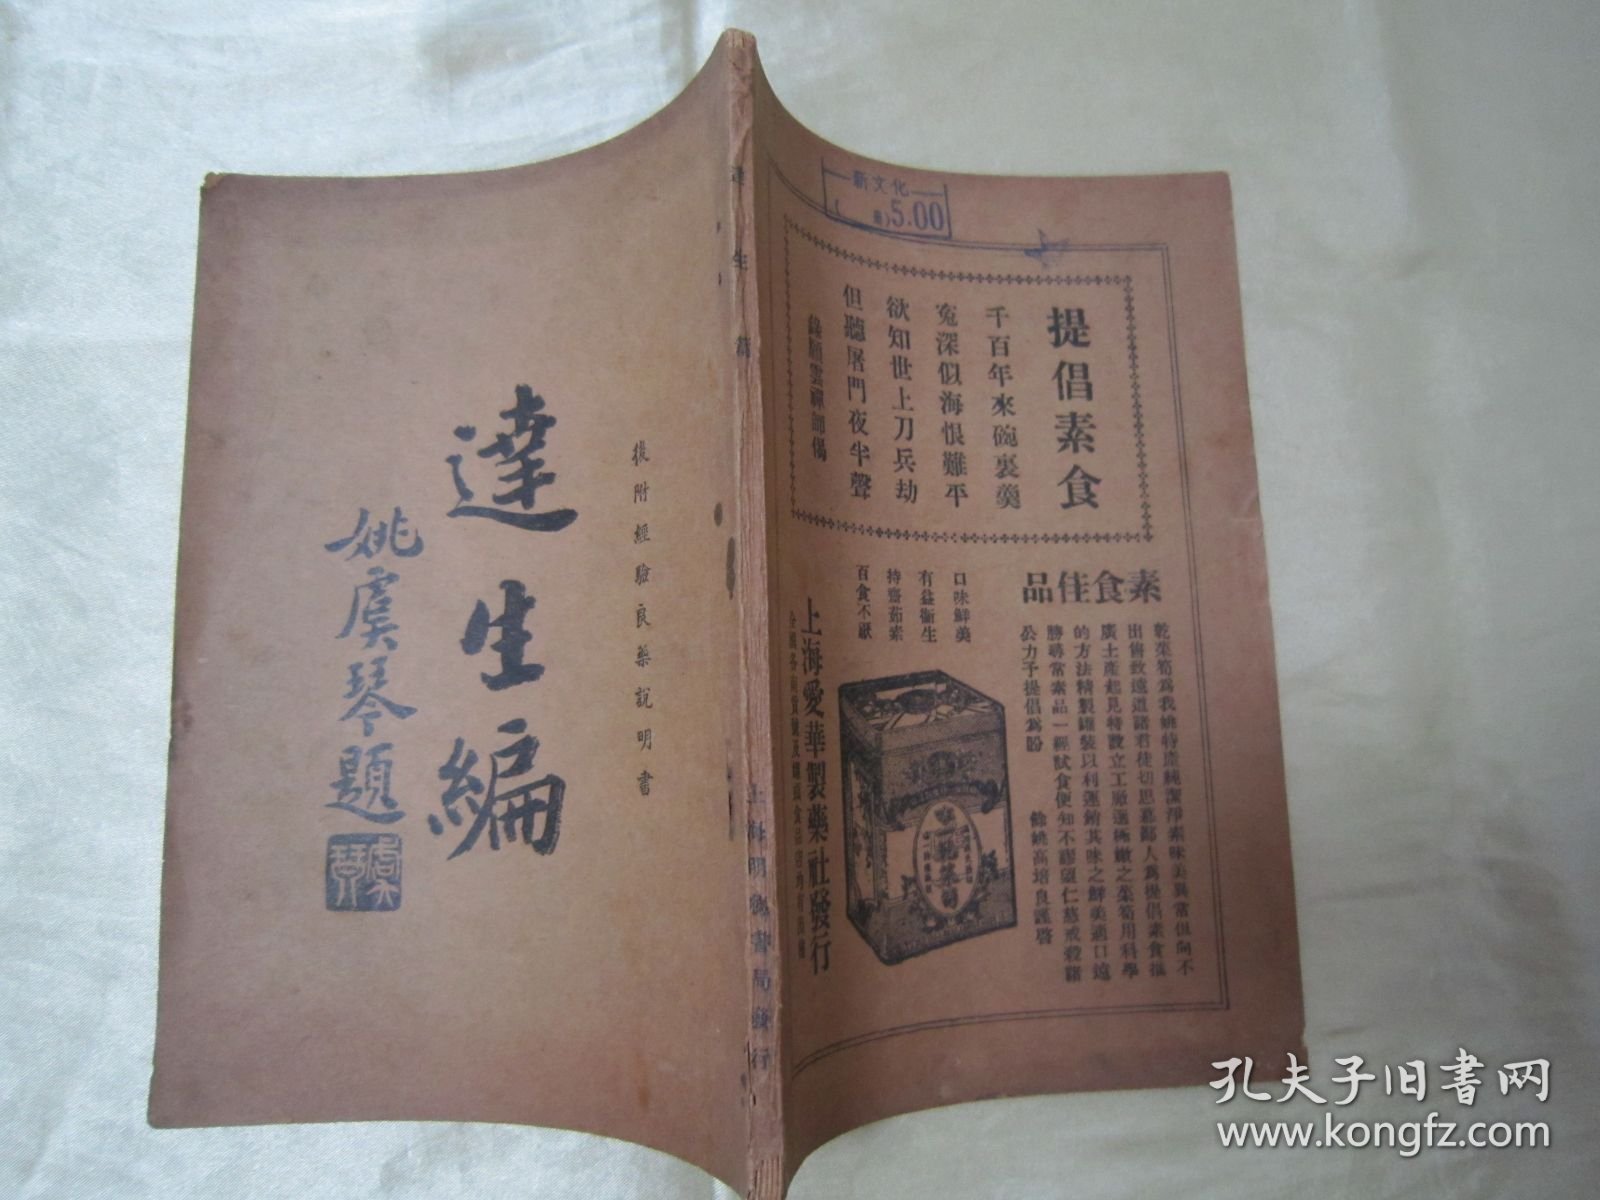 後附經驗良藥說明書
達生編
姚虞琴題
達生篇
上海明德書局發行
新文化
5.00
提倡素食
千百年來碗裏羹
寃深似海恨難平
欲知世上刀兵劫
但聽屠門夜半聲
錄願雲禪師偈
素食佳品
乾菜筍為我姚特產純潔淨素味美異常但向不
出售致遠道諸君徒切思慕鄙人為提倡素食推
廣土產起見特設立工廠選極嫩之菜筍用科學
的方法精製罐裝以利運銷其味之鮮美適口遠
勝尋常素品一經試食便知不謬望仁慈戒殺諸
公力予提倡為盼
餘姚高培良謹啓
口味鮮美
有益衞生
持齋茹素
百食不厭
上海愛華製藥社發行
孔夫子旧書网
www.kongfz.com